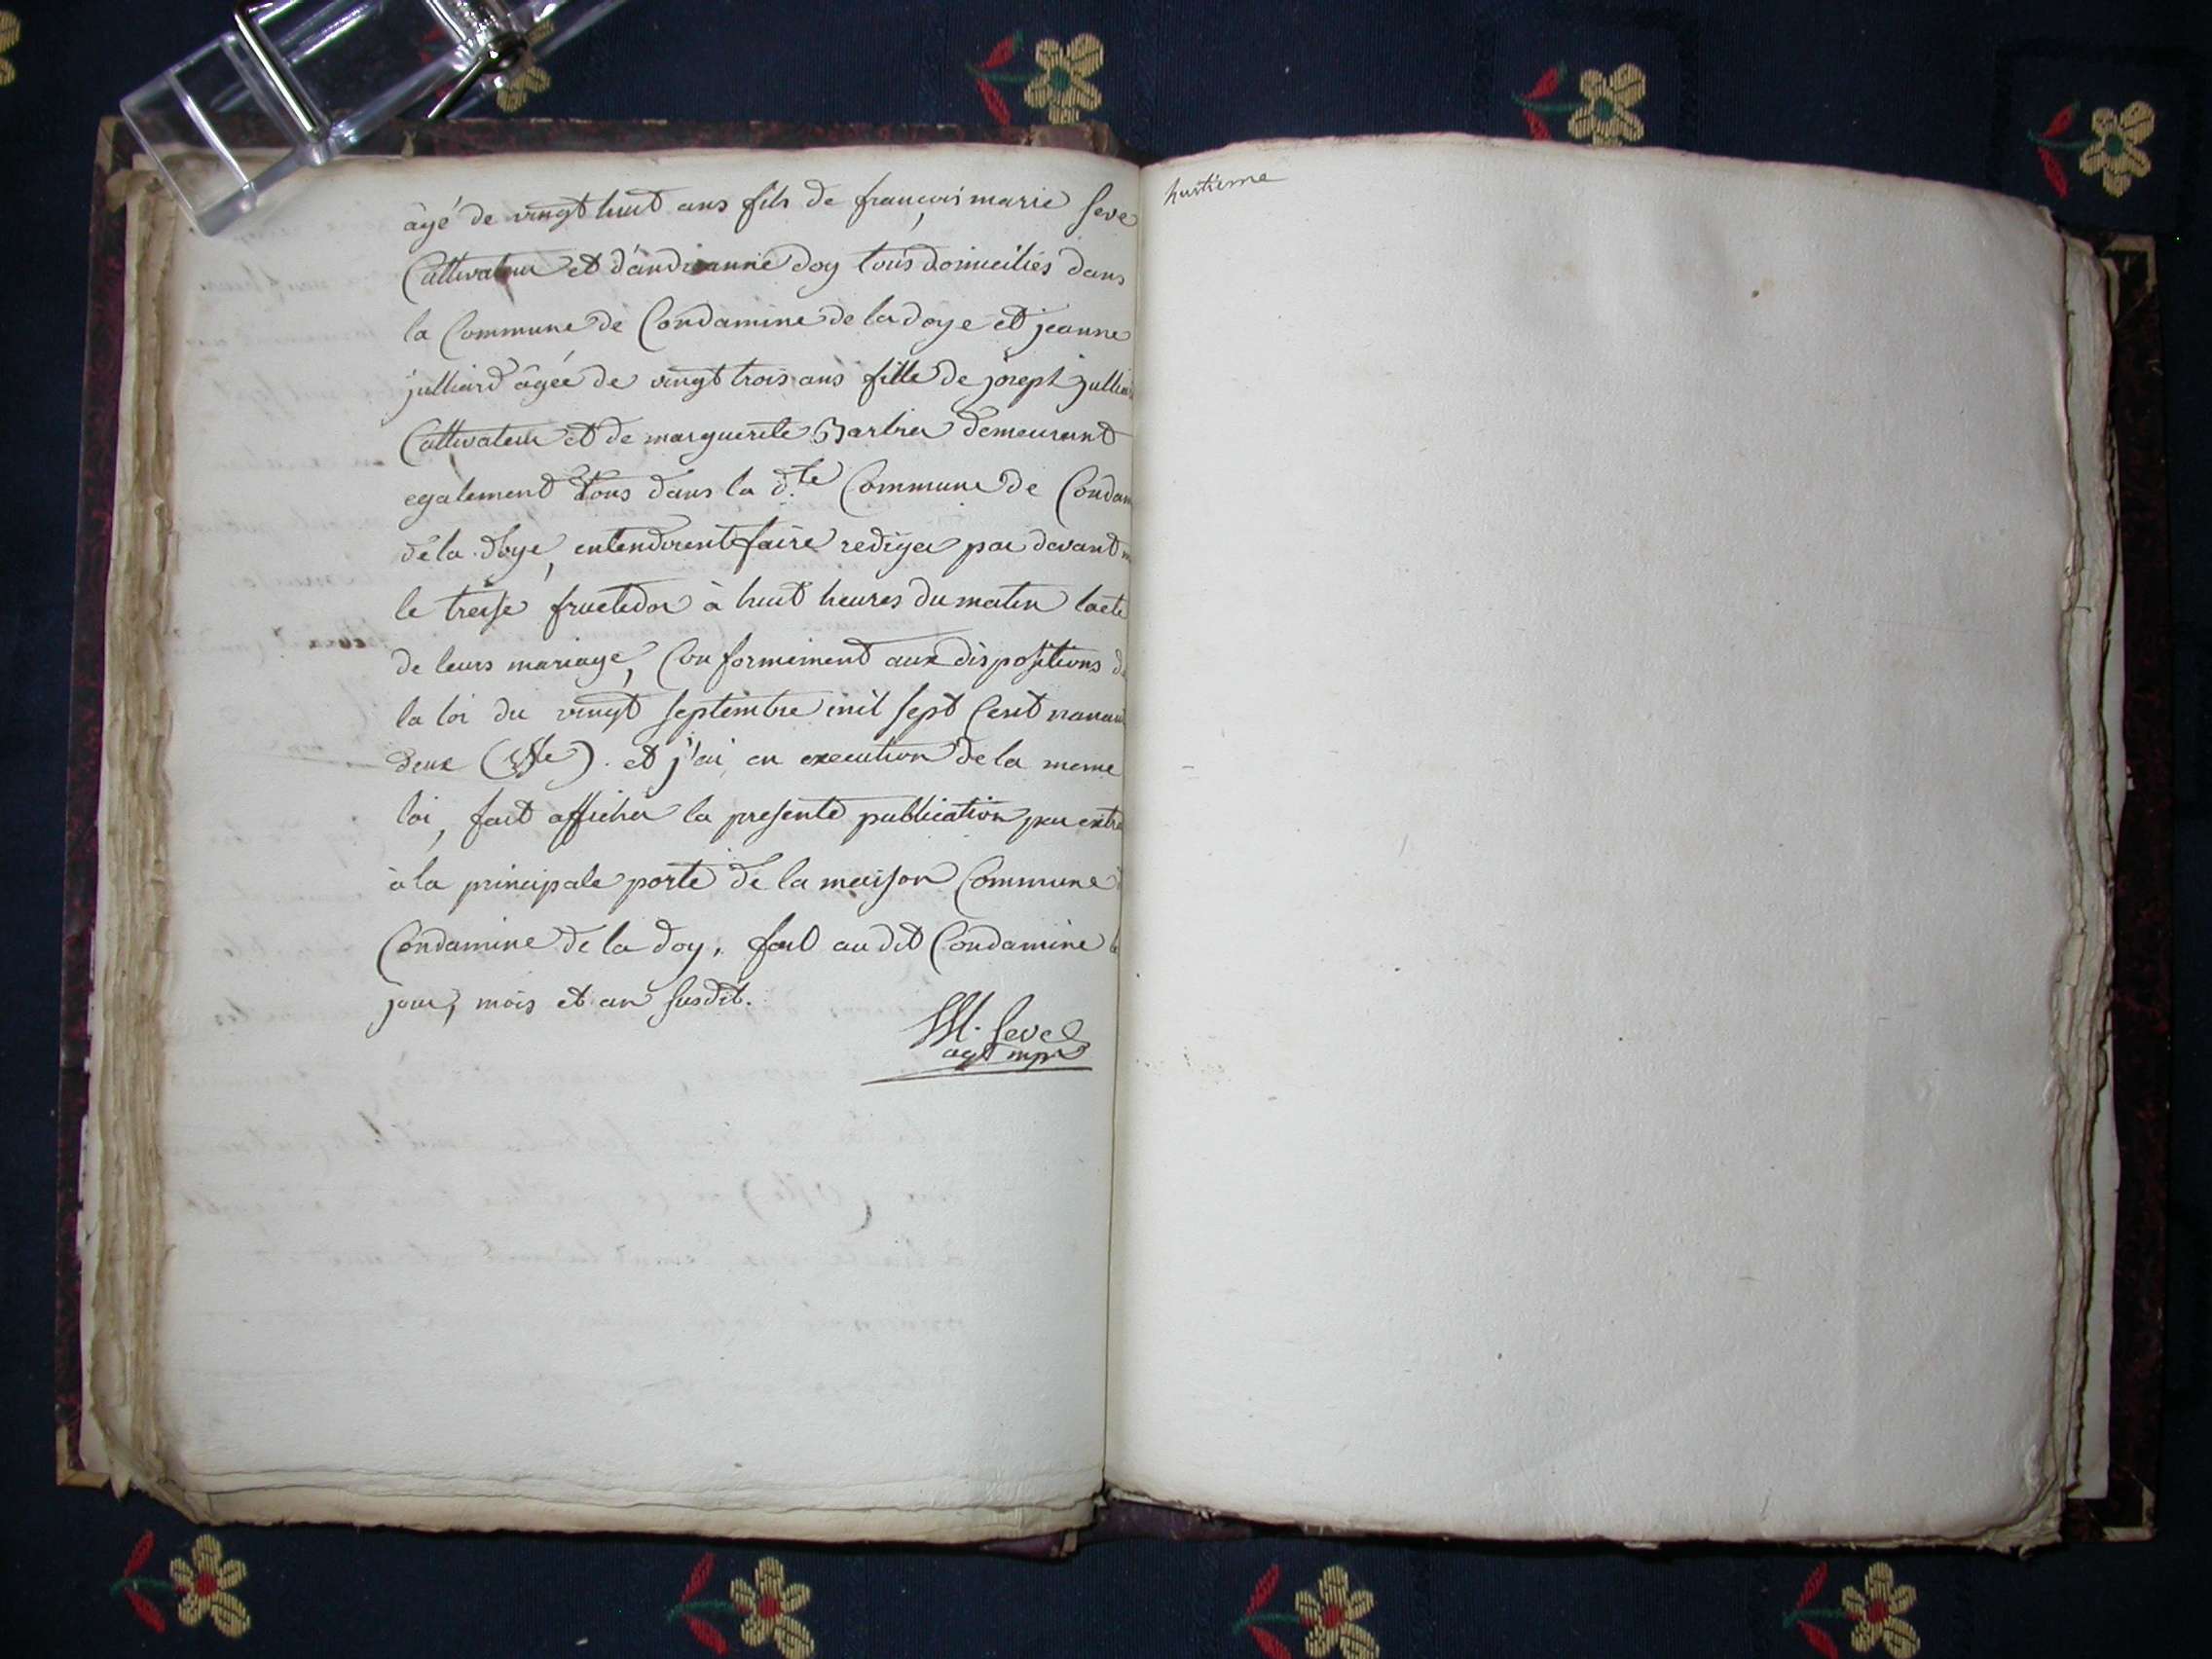 âgé de vingt huit ans fils de françois marie seve
Cultivateur et d'andréanne doy tous domiciliés dans
la Commune de Condamine de la doye et jeanne
julliard âgée de vingt trois ans fille de joseph julliard
Cultivateur et de marguerite Barbier demeurant
egalement tous dans la d.te Commune de Condam
de la doye, entendirent faire rediger par devant m
le treise fructidor à huit heures du matin l'acte
de leurs mariage, Conformément aux dispositions de
la loi du vingt septembre mil sept Cent nonante
deux (Sle). et j'ai en execution de la meme
loi, fait afficher la presente publication par extra
à la principale porte de la maison Commune d
Condamine de la doy. fait au dit Condamine le
jour, mois et an susdit.
M. Seve
agt mpal
huitieme